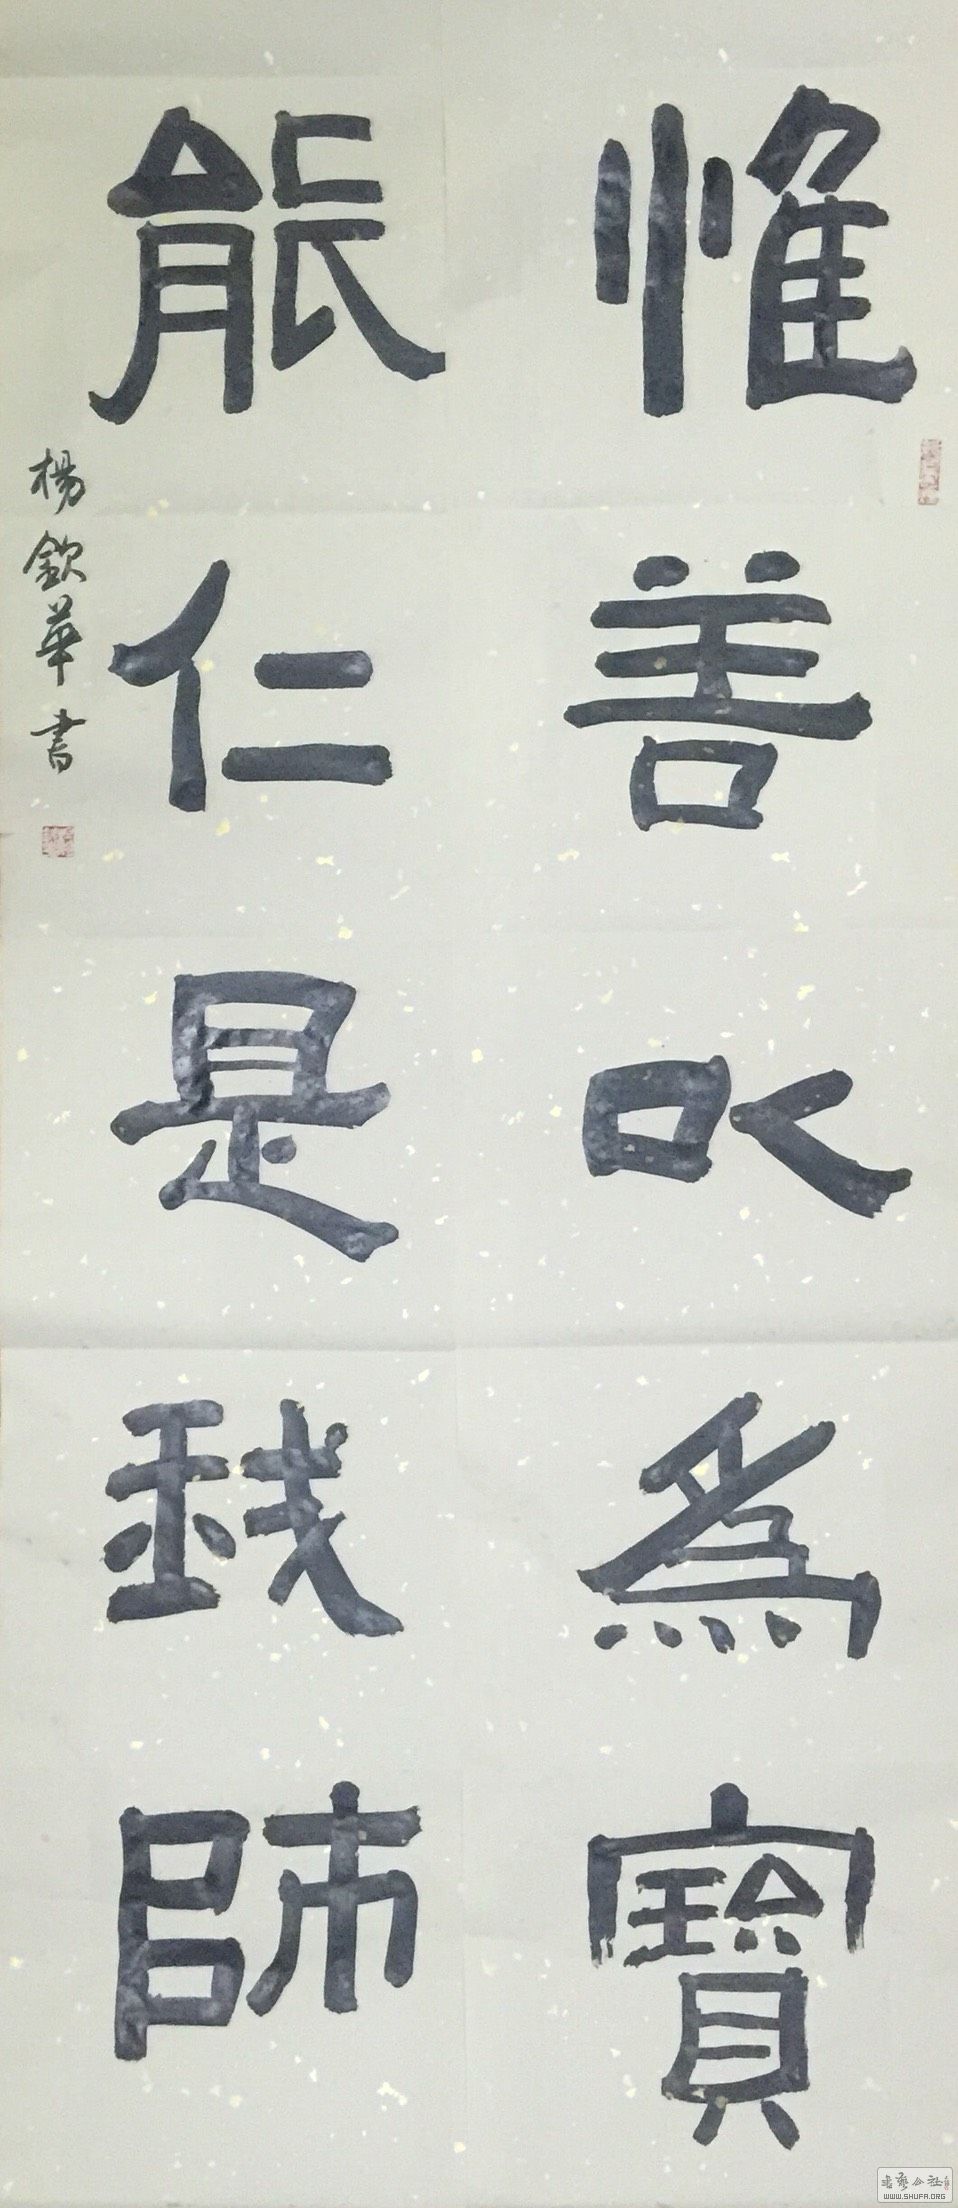 惟善以為寶
能仁是我師
楊欽華書
書艺公社
WWW.SHUFA.ORG